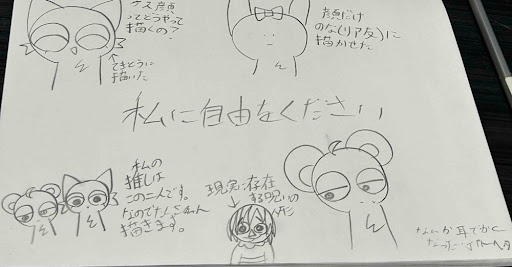 ゲス顔
ってどうやって
描くの?
↑
てきとうに
描いた
顔だけ
のな(リア友)に
描かせた
私に自由をください
私の
推しは
この二人です。
なのでたくさん
描きます。
現実に存在
する呪いの
人形
なんか耳でかく
なった